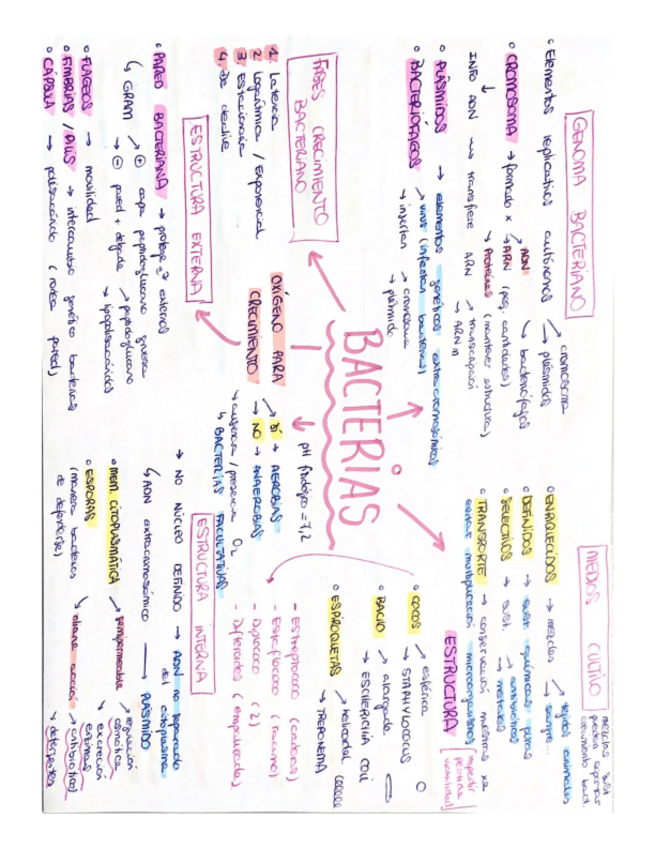 GENOMA BACTERIANO
• Elementos replicativos autónomos → cromosoma
→ plásmidos
→ bacteriófagos
• CROMOSOMA → formado x → ADN
→ ARN (peq. cantidades)
→ Proteínas (mantener estructura)
INFO ADN → transfiere ARN → transcripción
→ ARN m
• PLÁSMIDOS → elementos genéticos extracromosómicos
• BACTERIÓFAGOS → virus (infectan bacterias)
→ insertan → cromosoma
→ plásmido
FASES CRECIMIENTO
BACTERIANO
1. Latencia
2. Logarítmica / Exponencial
3. Estacionaria
4. De declive
ESTRUCTURA EXTERNA
• PARED BACTERIANA → protege externos
↳ GRAM → + capa peptidoglucano gruesa
→ - pared + delgada → peptidoglucano
→ lipopolisacáridos
• FLAGELOS → movilidad
• FIMBRIAS / PILIS → intercambio genético bacterias
• CÁPSULA → polisacárido (rodea pared)
BACTERIAS
OXÍGENO PARA
CRECIMIENTO
→ SÍ → AEROBIAS
→ NO → ANAEROBIAS
→ ausencia / presencia O₂
↳ BACTERIAS FACULTATIVAS
pH fisiológico = 7,2
MEDIOS CULTIVO
mezclas sust
puedan soportar
crecimiento bact.
• ENRIQUECIDOS → mezclas → tejidos animales
→ sangre...
• DEFINIDOS → sust. químicas puras
• SELECTIVOS → sust. → antibióticos
→ metales
• TRANSPORTE → conservación muestras xa
evitar multiplicación microorganismos
ESTRUCTURA
• COCOS → esférica
→ STAPHYLOCOCUS
• BACILO → alargada
→ ESCHERICHIA COLI
• ESPIROQUETAS → helicoidal
→ TREPONEMA
- Estreptococo (cadenas)
- Estafilococo (racimo)
- Diplococo (2)
- Diferoides (empalizada)
ESTRUCTURA INTERNA
→ NO NÚCLEO DEFINIDO → ADN no separado
del citoplasma
↳ ADN extracromosómico → PLÁSMIDO
• MEM. CITOPLASMÁTICA → semipermeable
→ regulación
osmótica
→ excreción
enzimas
• ESPORAS
(manera bacterias
de defenderse)
→ antibióticos
→ detergentes